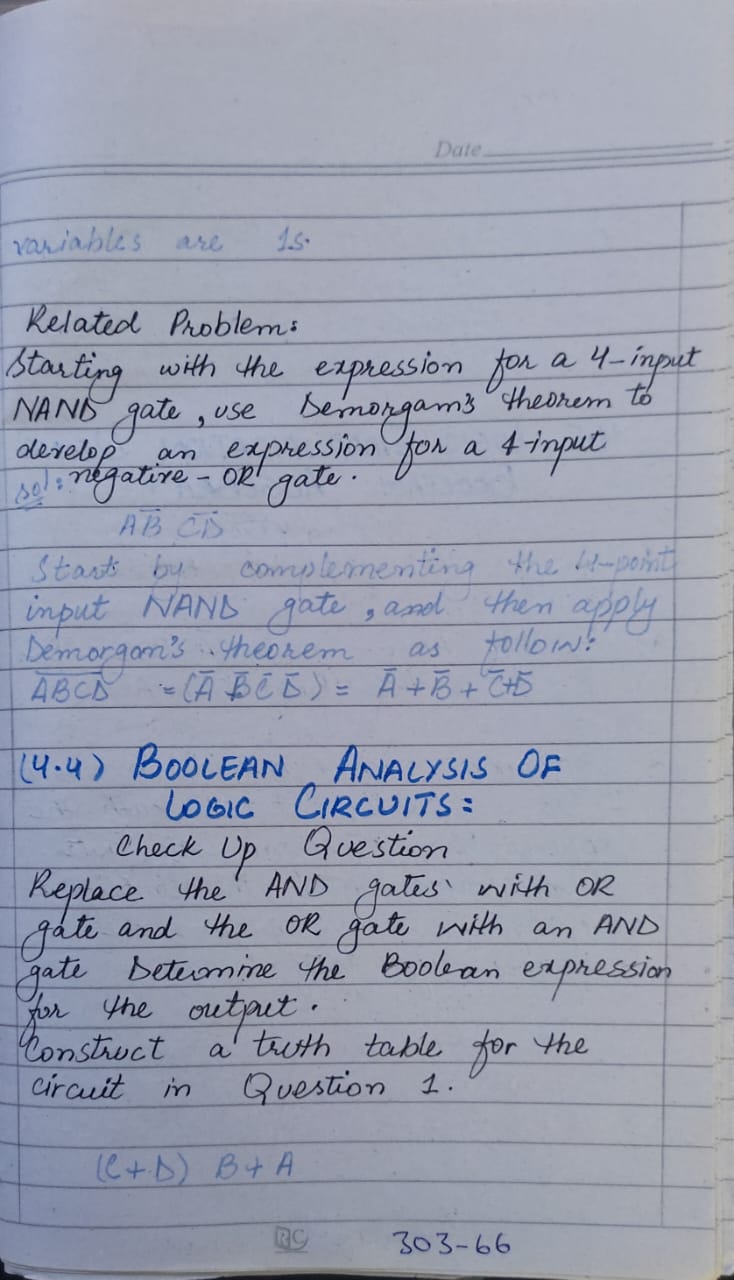 Date
variables are 1s.
Related Problem:
Starting with the expression for a 4-input
NAND gate, use Demorgam's theorem to
develop an expression for a 4-input
sol: negative - OR gate.
AB̅ C̅D̅
Starts by complementing the 4-point
input NAND gate, and then apply
Demorgan's theorem as follow:
A̅B̅C̅D̅ = (A̅ B̅ C̅ D̅) = A̅ + B̅ + C̅+D̅
(4.4) BOOLEAN ANALYSIS OF
LOGIC CIRCUITS:
Check Up Question
Replace the AND gates with OR
gate and the OR gate with an AND
gate Determine the Boolean expression
for the output.
Construct a truth table for the
circuit in Question 1.
(C+D) B+A
RC 303-66